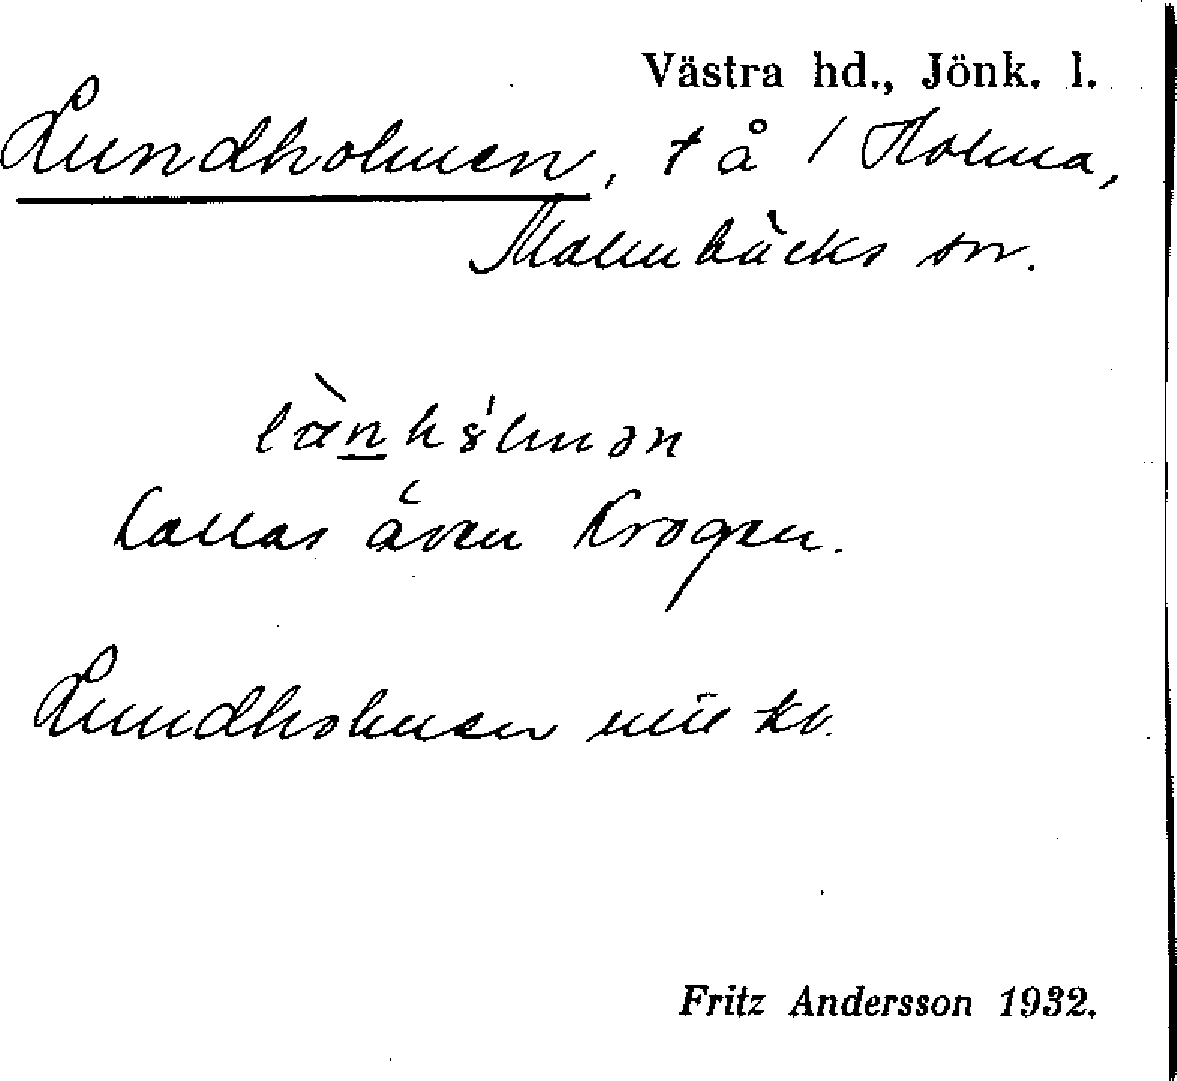 Västra hd., Jönk. l.
Lundholmen, t å / Holma,
Malmbäcks sn.
Kallas även Krogen.
Lundholmen
Fritz Andersson 1932.